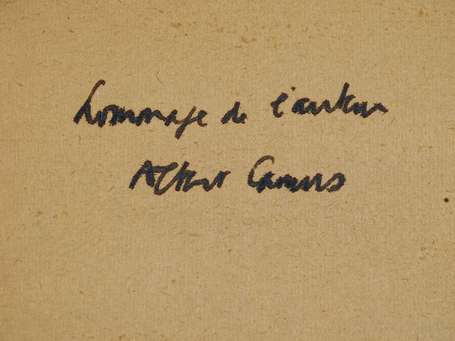 hommage de l'auteur
Albert Camus